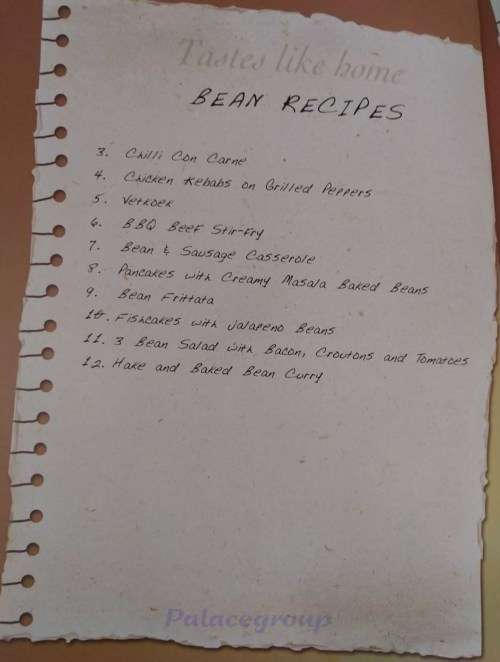 Tastes like home
BEAN RECIPES
3. Chilli Con Carne
4. Chicken Kebabs on Grilled Peppers
5. Vetkoek
6. BBQ Beef Stir-Fry
7. Bean & Sausage Casserole
8. Pancakes with Creamy Masala Baked Beans
9. Bean Frittata
10. Fishcakes with Jalapeno Beans
11. 3 Bean Salad with Bacon, Croutons and Tomatoes
12. Hake and Baked Bean Curry
Palacegroup